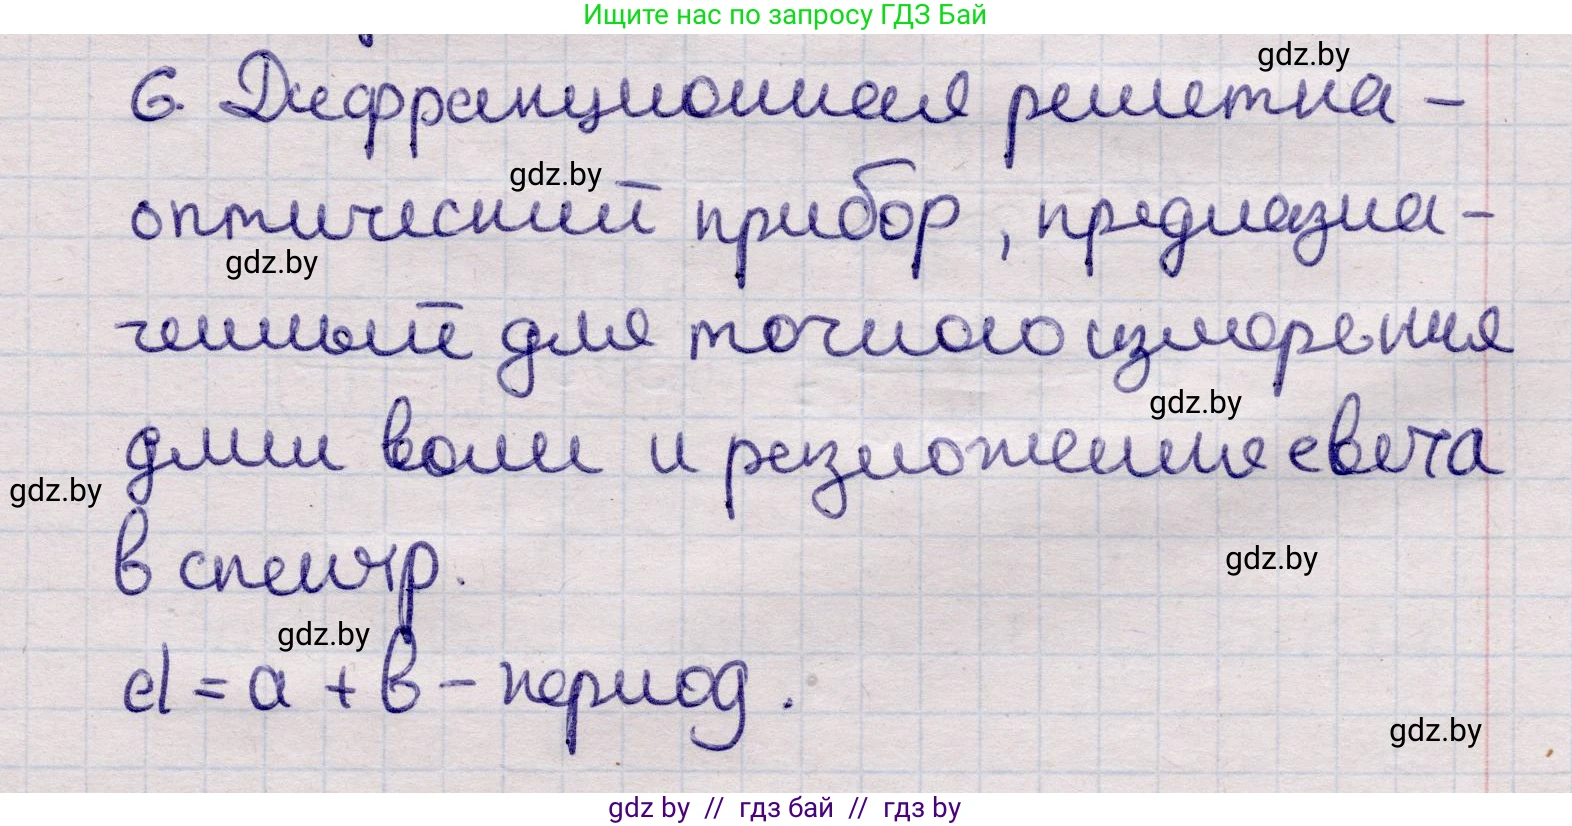 Ищите нас по запросу ГДЗ Бай
gdz.by
6. Дифракционная решетка –
gdz.by
оптический прибор, предназна-
gdz.by
ченный для точного измерения
gdz.by
длин волн и разложения света
gdz.by
в спектр.
gdz.by
gdz.by
d = a + в – период.
gdz.by
gdz by // гдз бай // гдз by